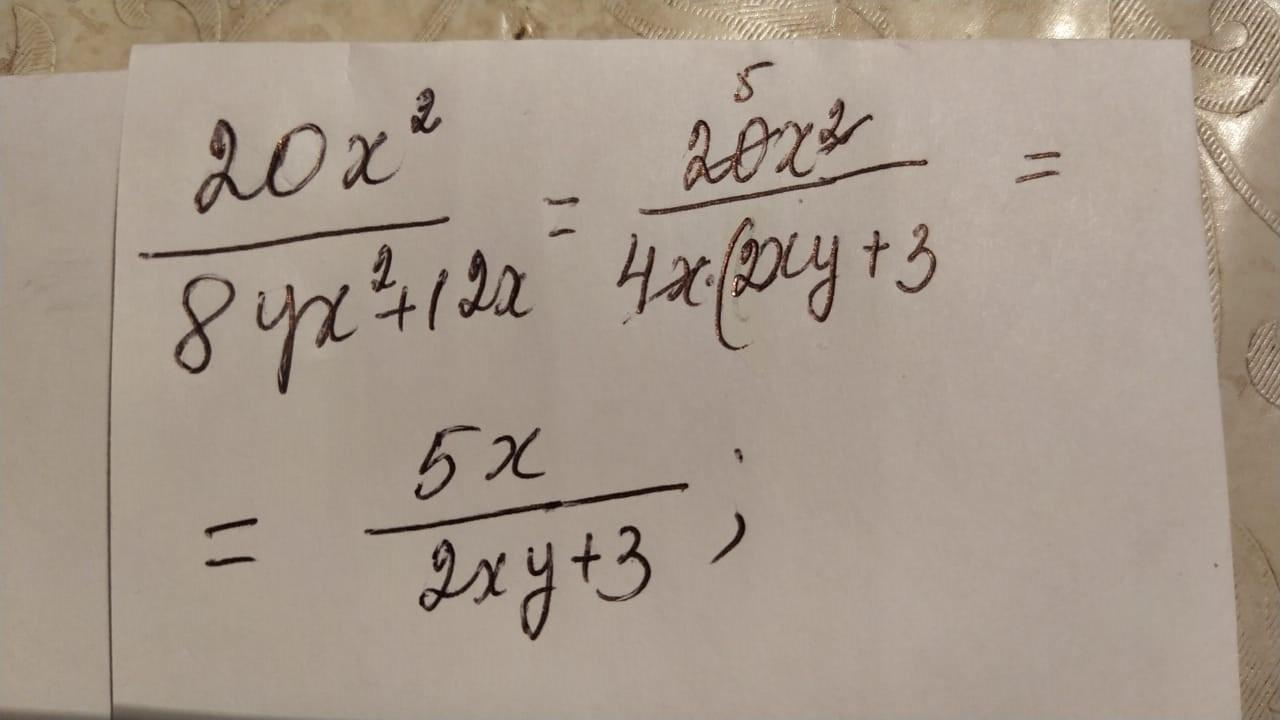 20x² / 8yx²+12x = 5 20x² / 4x·(2xy+3 =
= 5x / 2xy+3 ;